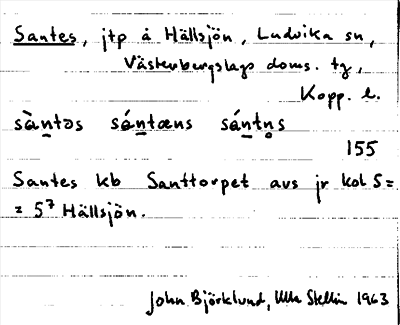 Santes, jtp å Hällsjön, Ludvika sn,
Västerbergslags doms. tg,
Kopp. l.
sàntəs sántæns sántn̥s
155
Santes kb Santtorpet avs jr kol 5 =
= 5⁷ Hällsjön.
John Björklund, Ulla Stellin 1963